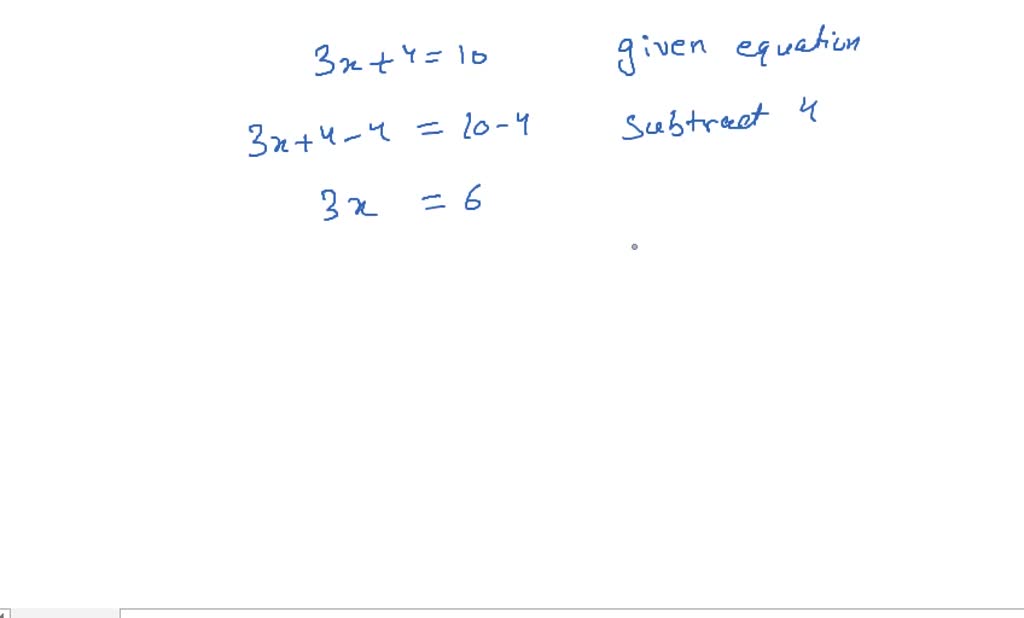 3x+4=10 given equation
3x+4-4 = 10-4 subtract 4
3x = 6